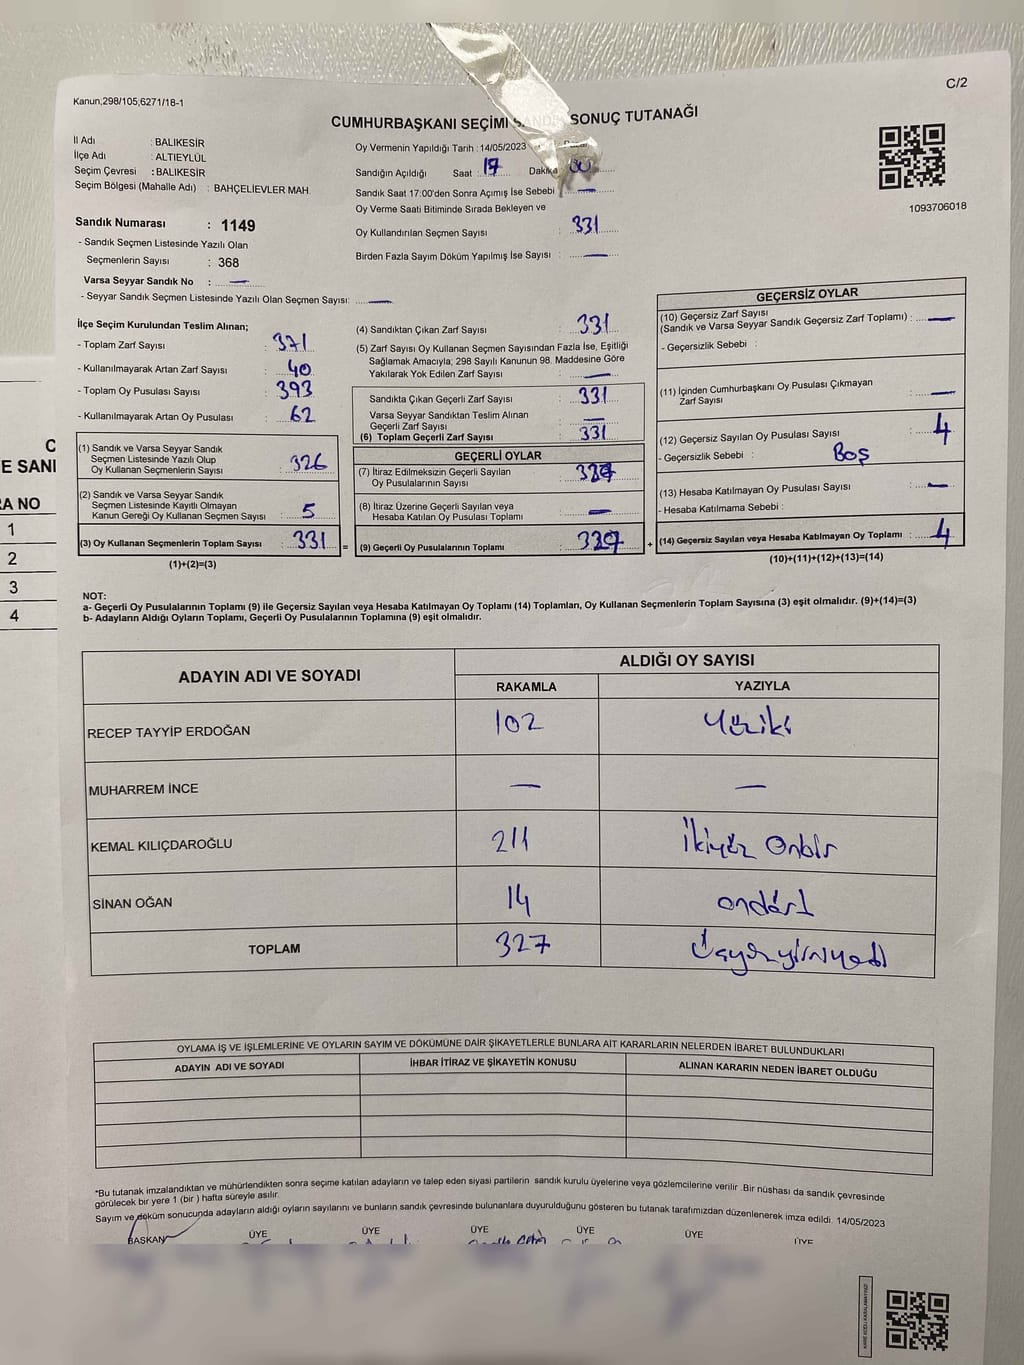 C/2
Kanun;298/105;6271/18-1
CUMHURBAŞKANI SEÇİMİ SONUÇ TUTANAĞI
İl Adı : BALIKESİR
İlçe Adı : ALTIEYLÜL
Seçim Çevresi : BALIKESİR
Seçim Bölgesi (Mahalle Adı) : BAHÇELİEVLER MAH.
Oy Vermenin Yapıldığı Tarih : 14/05/2023
Sandığın Açıldığı Saat : 17 Dakika 00
Sandık Saat 17:00'den Sonra Açımış İse Sebebi : —
Oy Verme Saati Bitiminde Sırada Bekleyen ve
Oy Kullandırılan Seçmen Sayısı : 331
Birden Fazla Sayım Döküm Yapılmış İse Sayısı : —
1093706018
Sandık Numarası : 1149
- Sandık Seçmen Listesinde Yazılı Olan
Seçmenlerin Sayısı : 368
Varsa Seyyar Sandık No : —
- Seyyar Sandık Seçmen Listesinde Yazılı Olan Seçmen Sayısı: —
İlçe Seçim Kurulundan Teslim Alınan;
- Toplam Zarf Sayısı : 371
- Kullanılmayarak Artan Zarf Sayısı : 40
- Toplam Oy Pusulası Sayısı : 393
- Kullanılmayarak Artan Oy Pusulası : 62
(1) Sandık ve Varsa Seyyar Sandık
Seçmen Listesinde Yazılı Olup
Oy Kullanan Seçmenlerin Sayısı : 326
(2) Sandık ve Varsa Seyyar Sandık
Seçmen Listesinde Kayıtlı Olmayan
Kanun Gereği Oy Kullanan Seçmen Sayısı : 5
(3) Oy Kullanan Seçmenlerin Toplam Sayısı : 331
(1)+(2)=(3)
(4) Sandıktan Çıkan Zarf Sayısı : 331
(5) Zarf Sayısı Oy Kullanan Seçmen Sayısından Fazla İse, Eşitliği
Sağlamak Amacıyla; 298 Sayılı Kanunun 98. Maddesine Göre
Yakılarak Yok Edilen Zarf Sayısı : —
Sandıkta Çıkan Geçerli Zarf Sayısı : 331
Varsa Seyyar Sandıktan Teslim Alınan
Geçerli Zarf Sayısı : —
(6) Toplam Geçerli Zarf Sayısı : 331
GEÇERLİ OYLAR
(7) İtiraz Edilmeksizin Geçerli Sayılan
Oy Pusulalarının Sayısı : 327
(8) İtiraz Üzerine Geçerli Sayılan veya
Hesaba Katılan Oy Pusulası Toplamı : —
= (9) Geçerli Oy Pusulalarının Toplamı : 327
GEÇERSİZ OYLAR
(10) Geçersiz Zarf Sayısı
(Sandık ve Varsa Seyyar Sandık Geçersiz Zarf Toplamı) : —
- Geçersizlik Sebebi :
(11) İçinden Cumhurbaşkanı Oy Pusulası Çıkmayan
Zarf Sayısı : —
(12) Geçersiz Sayılan Oy Pusulası Sayısı : 4
- Geçersizlik Sebebi : Boş
(13) Hesaba Katılmayan Oy Pusulası Sayısı : —
- Hesaba Katılmama Sebebi :
+ (14) Geçersiz Sayılan veya Hesaba Katılmayan Oy Toplamı : 4
(10)+(11)+(12)+(13)=(14)
NOT:
a- Geçerli Oy Pusulalarının Toplamı (9) ile Geçersiz Sayılan veya Hesaba Katılmayan Oy Toplamı (14) Toplamları, Oy Kullanan Seçmenlerin Toplam Sayısına (3) eşit olmalıdır. (9)+(14)=(3)
b- Adayların Aldığı Oyların Toplamı, Geçerli Oy Pusulalarının Toplamına (9) eşit olmalıdır.
ADAYIN ADI VE SOYADI ALDIĞI OY SAYISI
RAKAMLA YAZIYLA
RECEP TAYYİP ERDOĞAN 102 Yüziki
MUHARREM İNCE — —
KEMAL KILIÇDAROĞLU 211 İkiyüz Onbir
SİNAN OĞAN 14 ondört
TOPLAM 327 Üçyüzyirmiyedi
OYLAMA İŞ VE İŞLEMLERİNE VE OYLARIN SAYIM VE DÖKÜMÜNE DAİR ŞİKAYETLERLE BUNLARA AİT KARARLARIN NELERDEN İBARET BULUNDUKLARI
ADAYIN ADI VE SOYADI İHBAR İTİRAZ VE ŞİKAYETİN KONUSU ALINAN KARARIN NEDEN İBARET OLDUĞU
*Bu tutanak imzalandıktan ve mühürlendikten sonra seçime katılan adayların ve talep eden siyasi partilerin sandık kurulu üyelerine veya gözlemcilerine verilir .Bir nüshası da sandık çevresinde
görülecek bir yere 1 (bir ) hafta süreyle asılır.
Sayım ve döküm sonucunda adayların aldığı oyların sayılarını ve bunların sandık çevresinde bulunanlara duyurulduğunu gösteren bu tutanak tarafımızdan düzenlenerek imza edildi. 14/05/2023
BAŞKAN ÜYE ÜYE ÜYE ÜYE ÜYE ÜYE
C
E SANI
RA NO
1
2
3
4